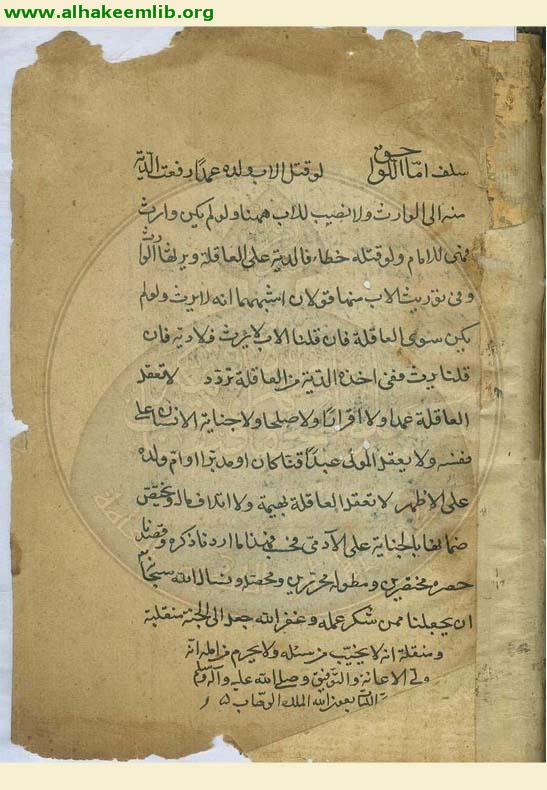 www.alhakeemlib.org
سلف امّا اللواحق لو قتل الاب ولده عمدًا دفعت الدّية
منه الى الوارث ولا نصيب للاب منها ولو لم يكن وارث
فهى للامام ولو قتله خطاء فالدية على العاقلة ويرثها الوارث
وفى توريث الاب منها قولان اشبههما انه لا يرث ولو لم
يكن سوى العاقلة فان قلنا الاب لا يرث فلا دية فان
قلنا يرث ففى اخذه الدّية من العاقلة تردّد لا تعقد
العاقلة عمدا ولا اقرارًا ولا صلحا ولا جناية الانسان على
نفسه ولا يعقد المولى عبدًا قنّا كان او مدبّرا او امّ ولده
على الاظهر لا تعقد العاقلة بهيمة ولا اتلاف مال ويختصّ
ضمانها بالجناية على الآدمى فهذا ما اردنا ذكره وقصدنا
حصره مختصرين ومطوله محرّرين ومحصله ونسال الله سبحانه
ان يجعلنا ممن شكر عمله وغفر الله جعل الى الجنة منقلبه
ومنقلة انه لا يخيّب من سئله ولا يحرم من امله انّه
ولى الاعانة والتوفيق وصلى الله عليه وآله وسلم
الكتاب بعون الله الملك الوهاب